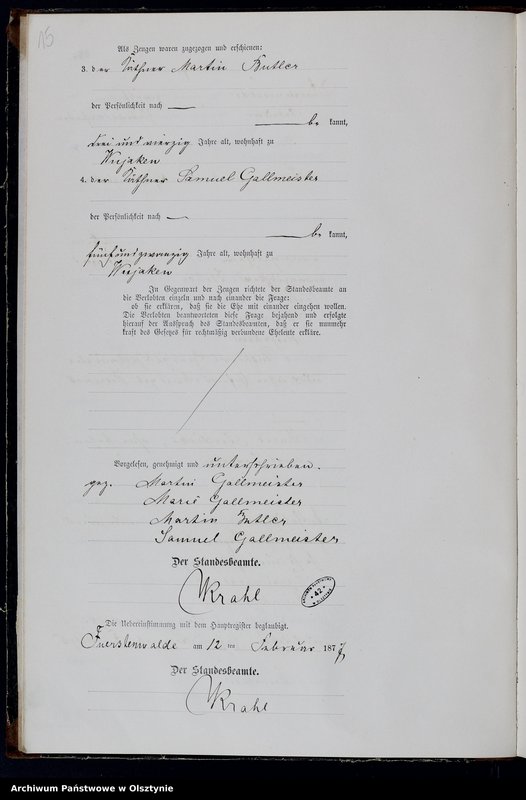 15
Als Zeugen waren zugezogen und erschienen:
3. der Käthner Martin Butler
der Persönlichkeit nach
be kannt,
drei und vierzig Jahre alt, wohnhaft zu
Wujaken
4. der Käthner Samuel Gallmeister
der Persönlichkeit nach
be kannt,
fünfundzwanzig Jahre alt, wohnhaft zu
Wujaken
In Gegenwart der Zeugen richtete der Standesbeamte an
die Verlobten einzeln und nach einander die Frage:
ob sie erklären, daß sie die Ehe mit einander eingehen wollen.
Die Verlobten beantworteten diese Frage bejahend und erfolgte
hierauf der Ausspruch des Standesbeamten, daß er sie nunmehr
kraft des Gesetzes für rechtmäßig verbundene Eheleute erkläre.
Vorgelesen, genehmigt und unterschrieben.
gez. Martin Gallmeister
Marie Gallmeister
Martin Butler
Samuel Gallmeister
Der Standesbeamte.
Krahl
42
Die Uebereinstimmung mit dem Hauptregister beglaubigt.
Fuerstenwalde am 12 ten Februar 1877
Der Standesbeamte.
Krahl
Archiwum Państwowe w Olsztynie